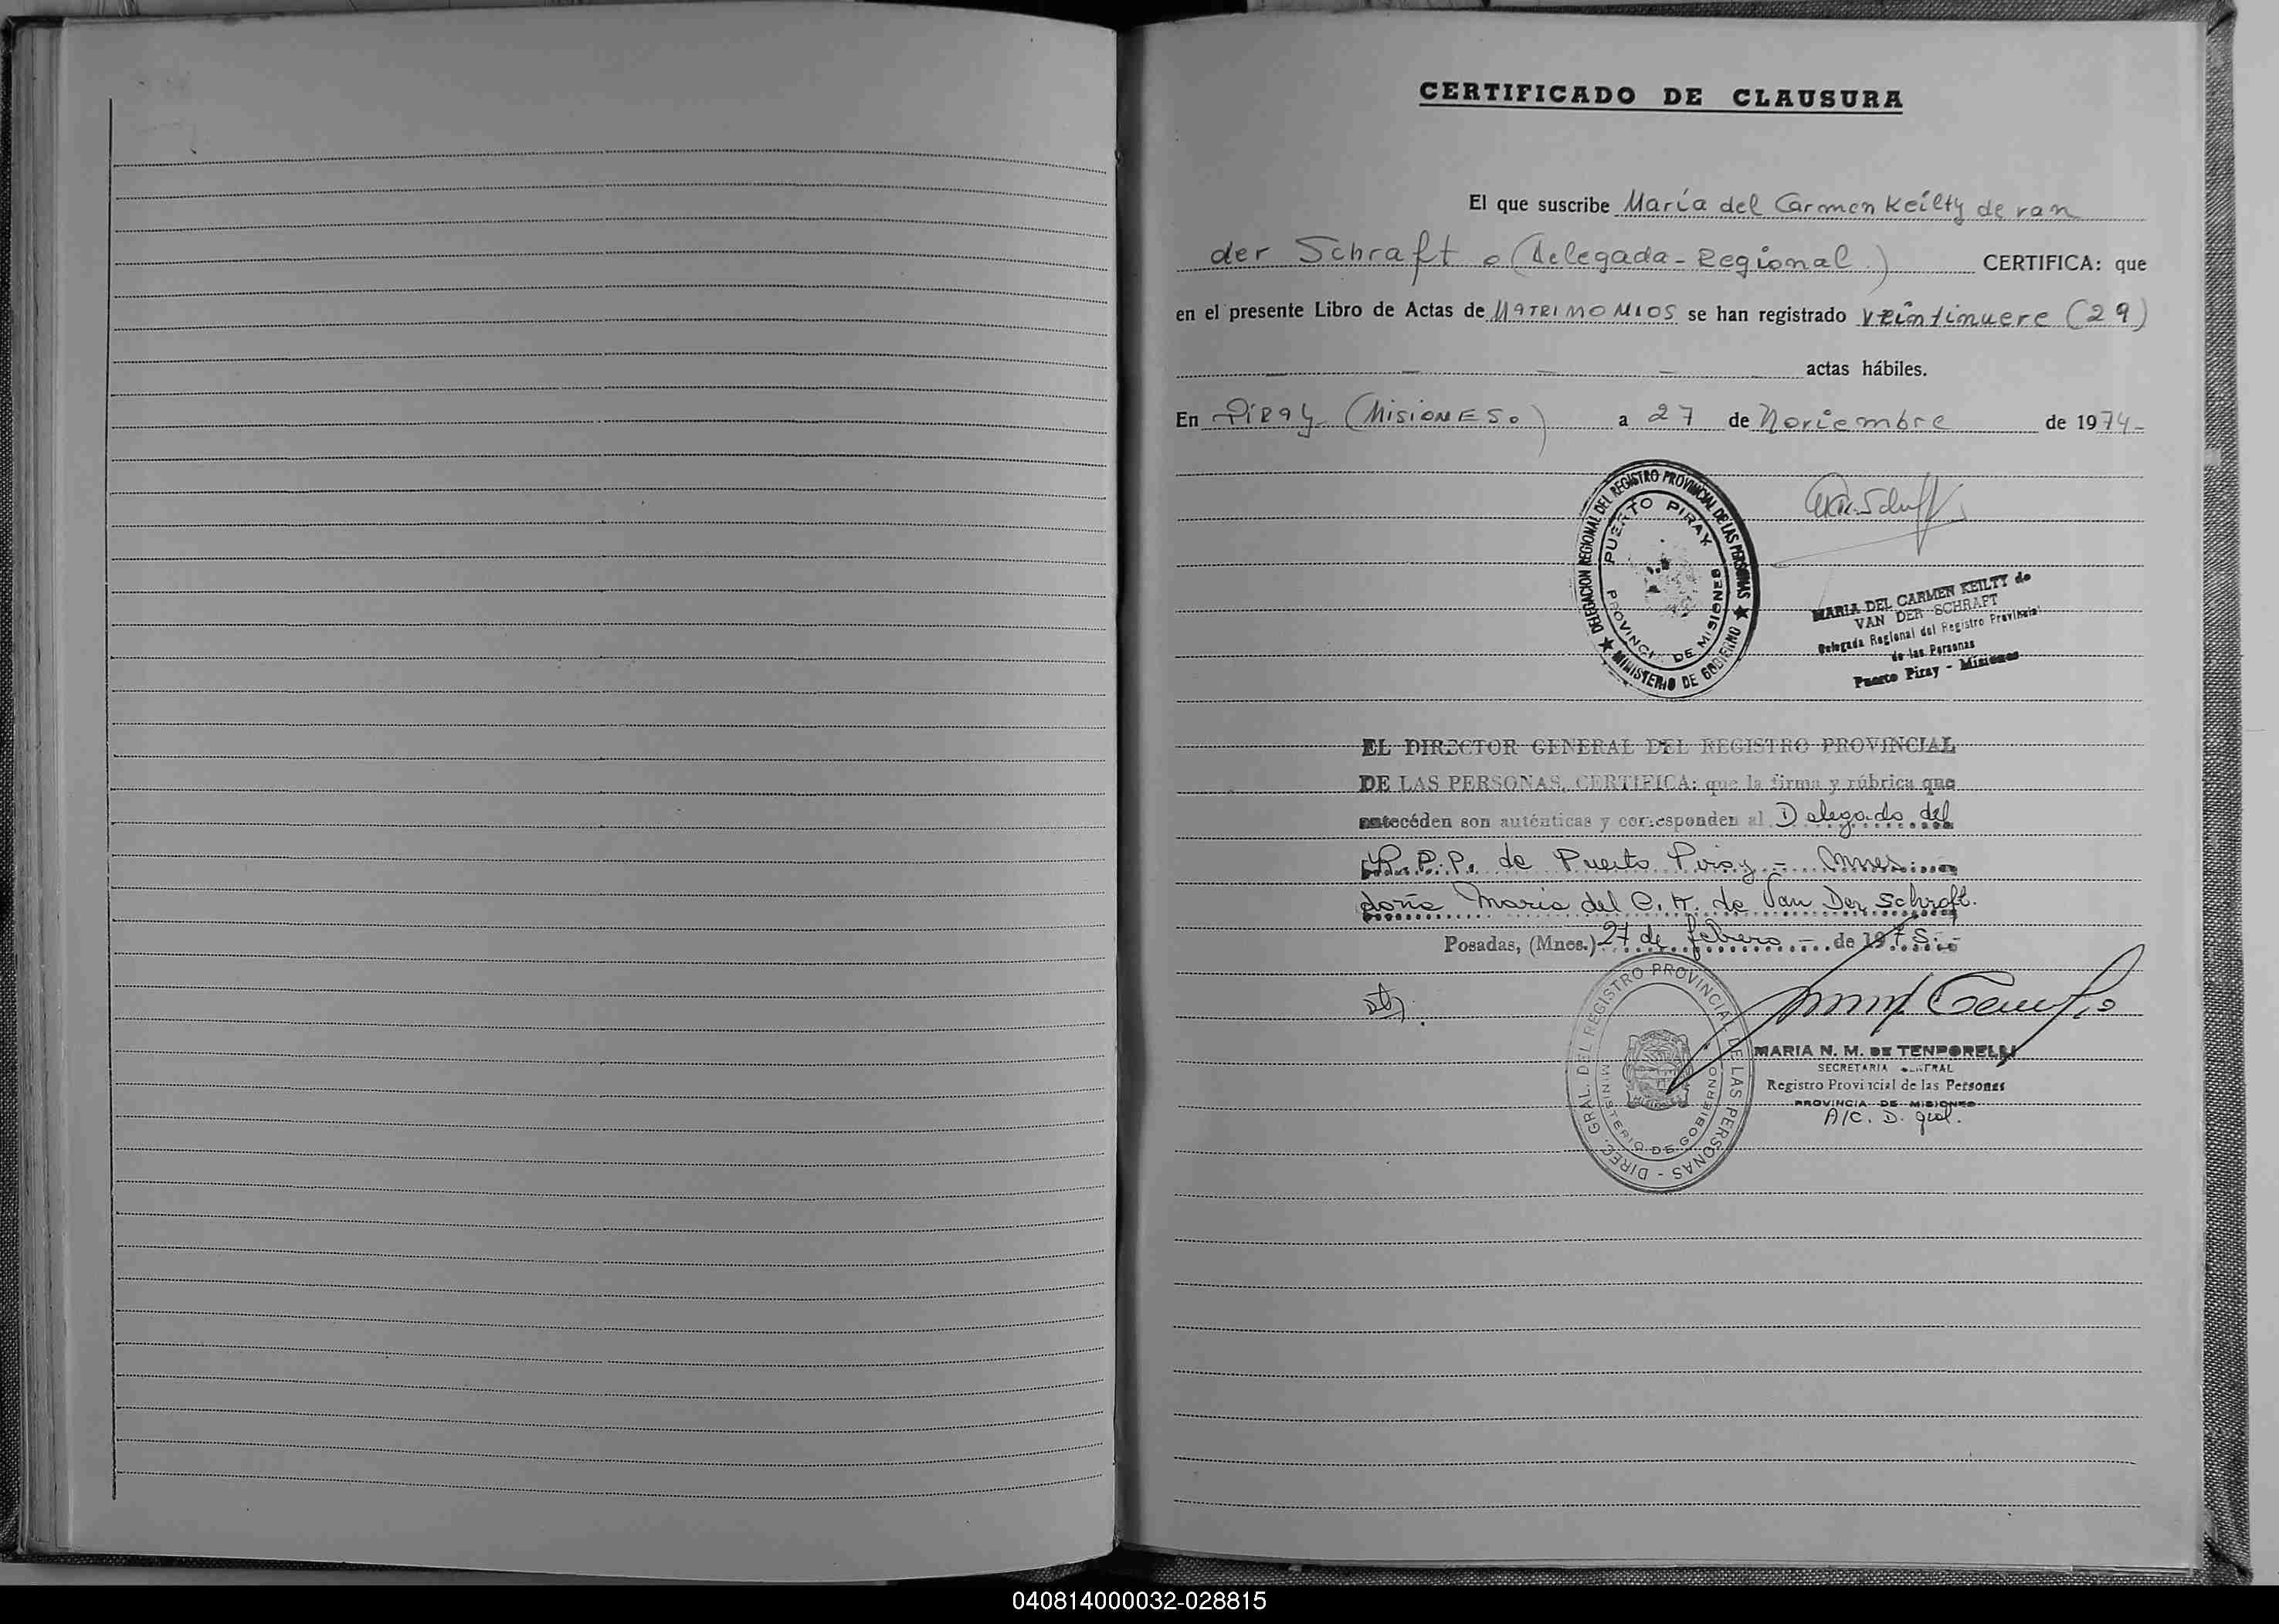 CERTIFICADO DE CLAUSURA
El que suscribe María del Carmen Keilty de van
der Schraft (Delegada-Regional.) CERTIFICA: que
en el presente Libro de Actas de MATRIMONIOS se han registrado veintinueve (29)
actas hábiles.
En Piray (MISIONES.) a 27 de Noviembre de 1974-
DELEGACION REGIONAL DEL REGISTRO PROVINCIAL DE LAS PERSONAS ★ MINISTERIO DE GOBIERNO ★
PUERTO PIRAY
PROVINCIA DE MISIONES
MARIA DEL CARMEN KEILTY de
VAN DER SCHRAFT
Delegada Regional del Registro Provincial
de las Personas
Puerto Piray - Misiones
EL DIRECTOR GENERAL DEL REGISTRO PROVINCIAL
DE LAS PERSONAS, CERTIFICA: que la firma y rúbrica que
antecéden son auténticas y corresponden al Delegado del
R.P.P. de Puerto Piray - Mnes.
doña Maria del C. K. de Van Der Schraft.
Posadas, (Mnes.) 27 de febrero - de 1975.-
DIREC. GRAL. DEL REGISTRO PROVINCIAL DE LAS PERSONAS -
MINISTERIO DE GOBIERNO
MARIA N. M. DE TENPORELLI
SECRETARIA GENERAL
Registro Provincial de las Personas
PROVINCIA DE MISIONES
A/C. D. gral.
040814000032-028815